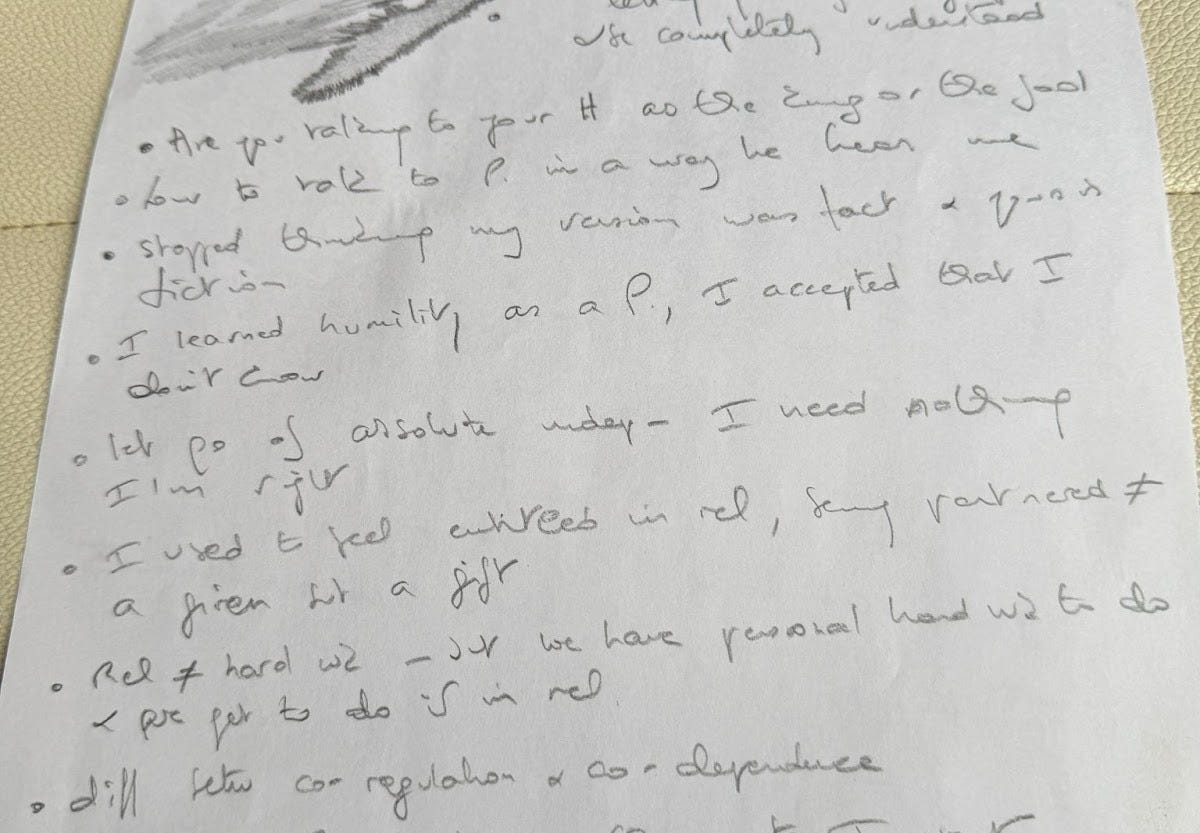 completely understood
• Are you talking to your H as the king or the fool
• how to talk to P. in a way he hears me
• stopped thinking my version was fact & yours is
fiction
• I learned humility as a P., I accepted that I
don't know
• let go of absolute indep - I need nothing
I'm right
• I used to feel entitled in rel, being partnered ≠
a given but a gift
• Rel ≠ hard wk - but we have personal hard wk to do
& we get to do it in rel.
• diff betw co-regulation & co-dependence